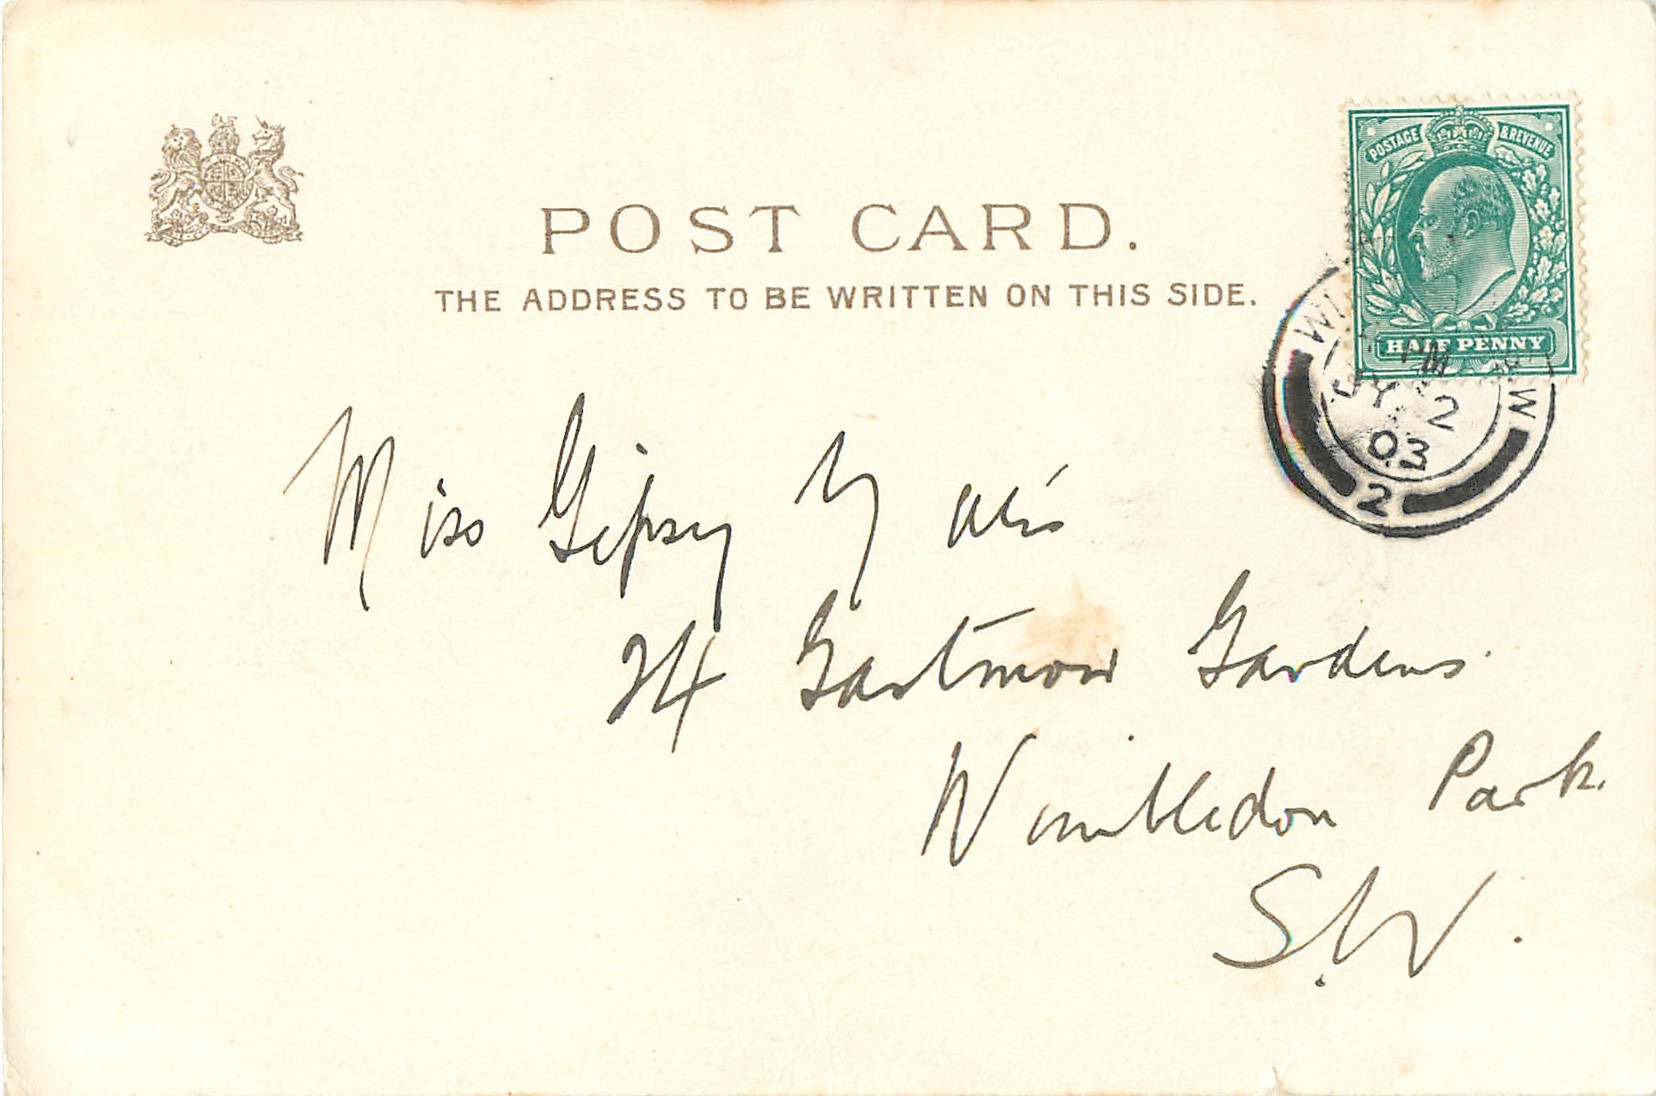 POST CARD.
THE ADDRESS TO BE WRITTEN ON THIS SIDE.
POSTAGE & REVENUE
HALF PENNY
PM
JY 2
03
2
Miss Gipsy
24 Gardens
Wimbledon Park.
S.W.